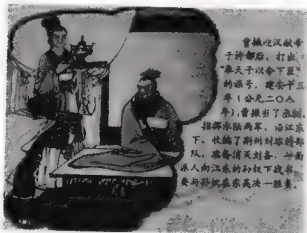 曹操迎汉献帝
于许都后，打出"
奉天子以令下臣"
的旗号，建安十三
年（公元二〇八
年），曹操当了丞相，
指挥水陆两军，沿江东
下，收编了荆州刘琮降部
队，准备消灭刘备，并
派人向江东的孙权下战书，
要与孙权在东吴决一胜负